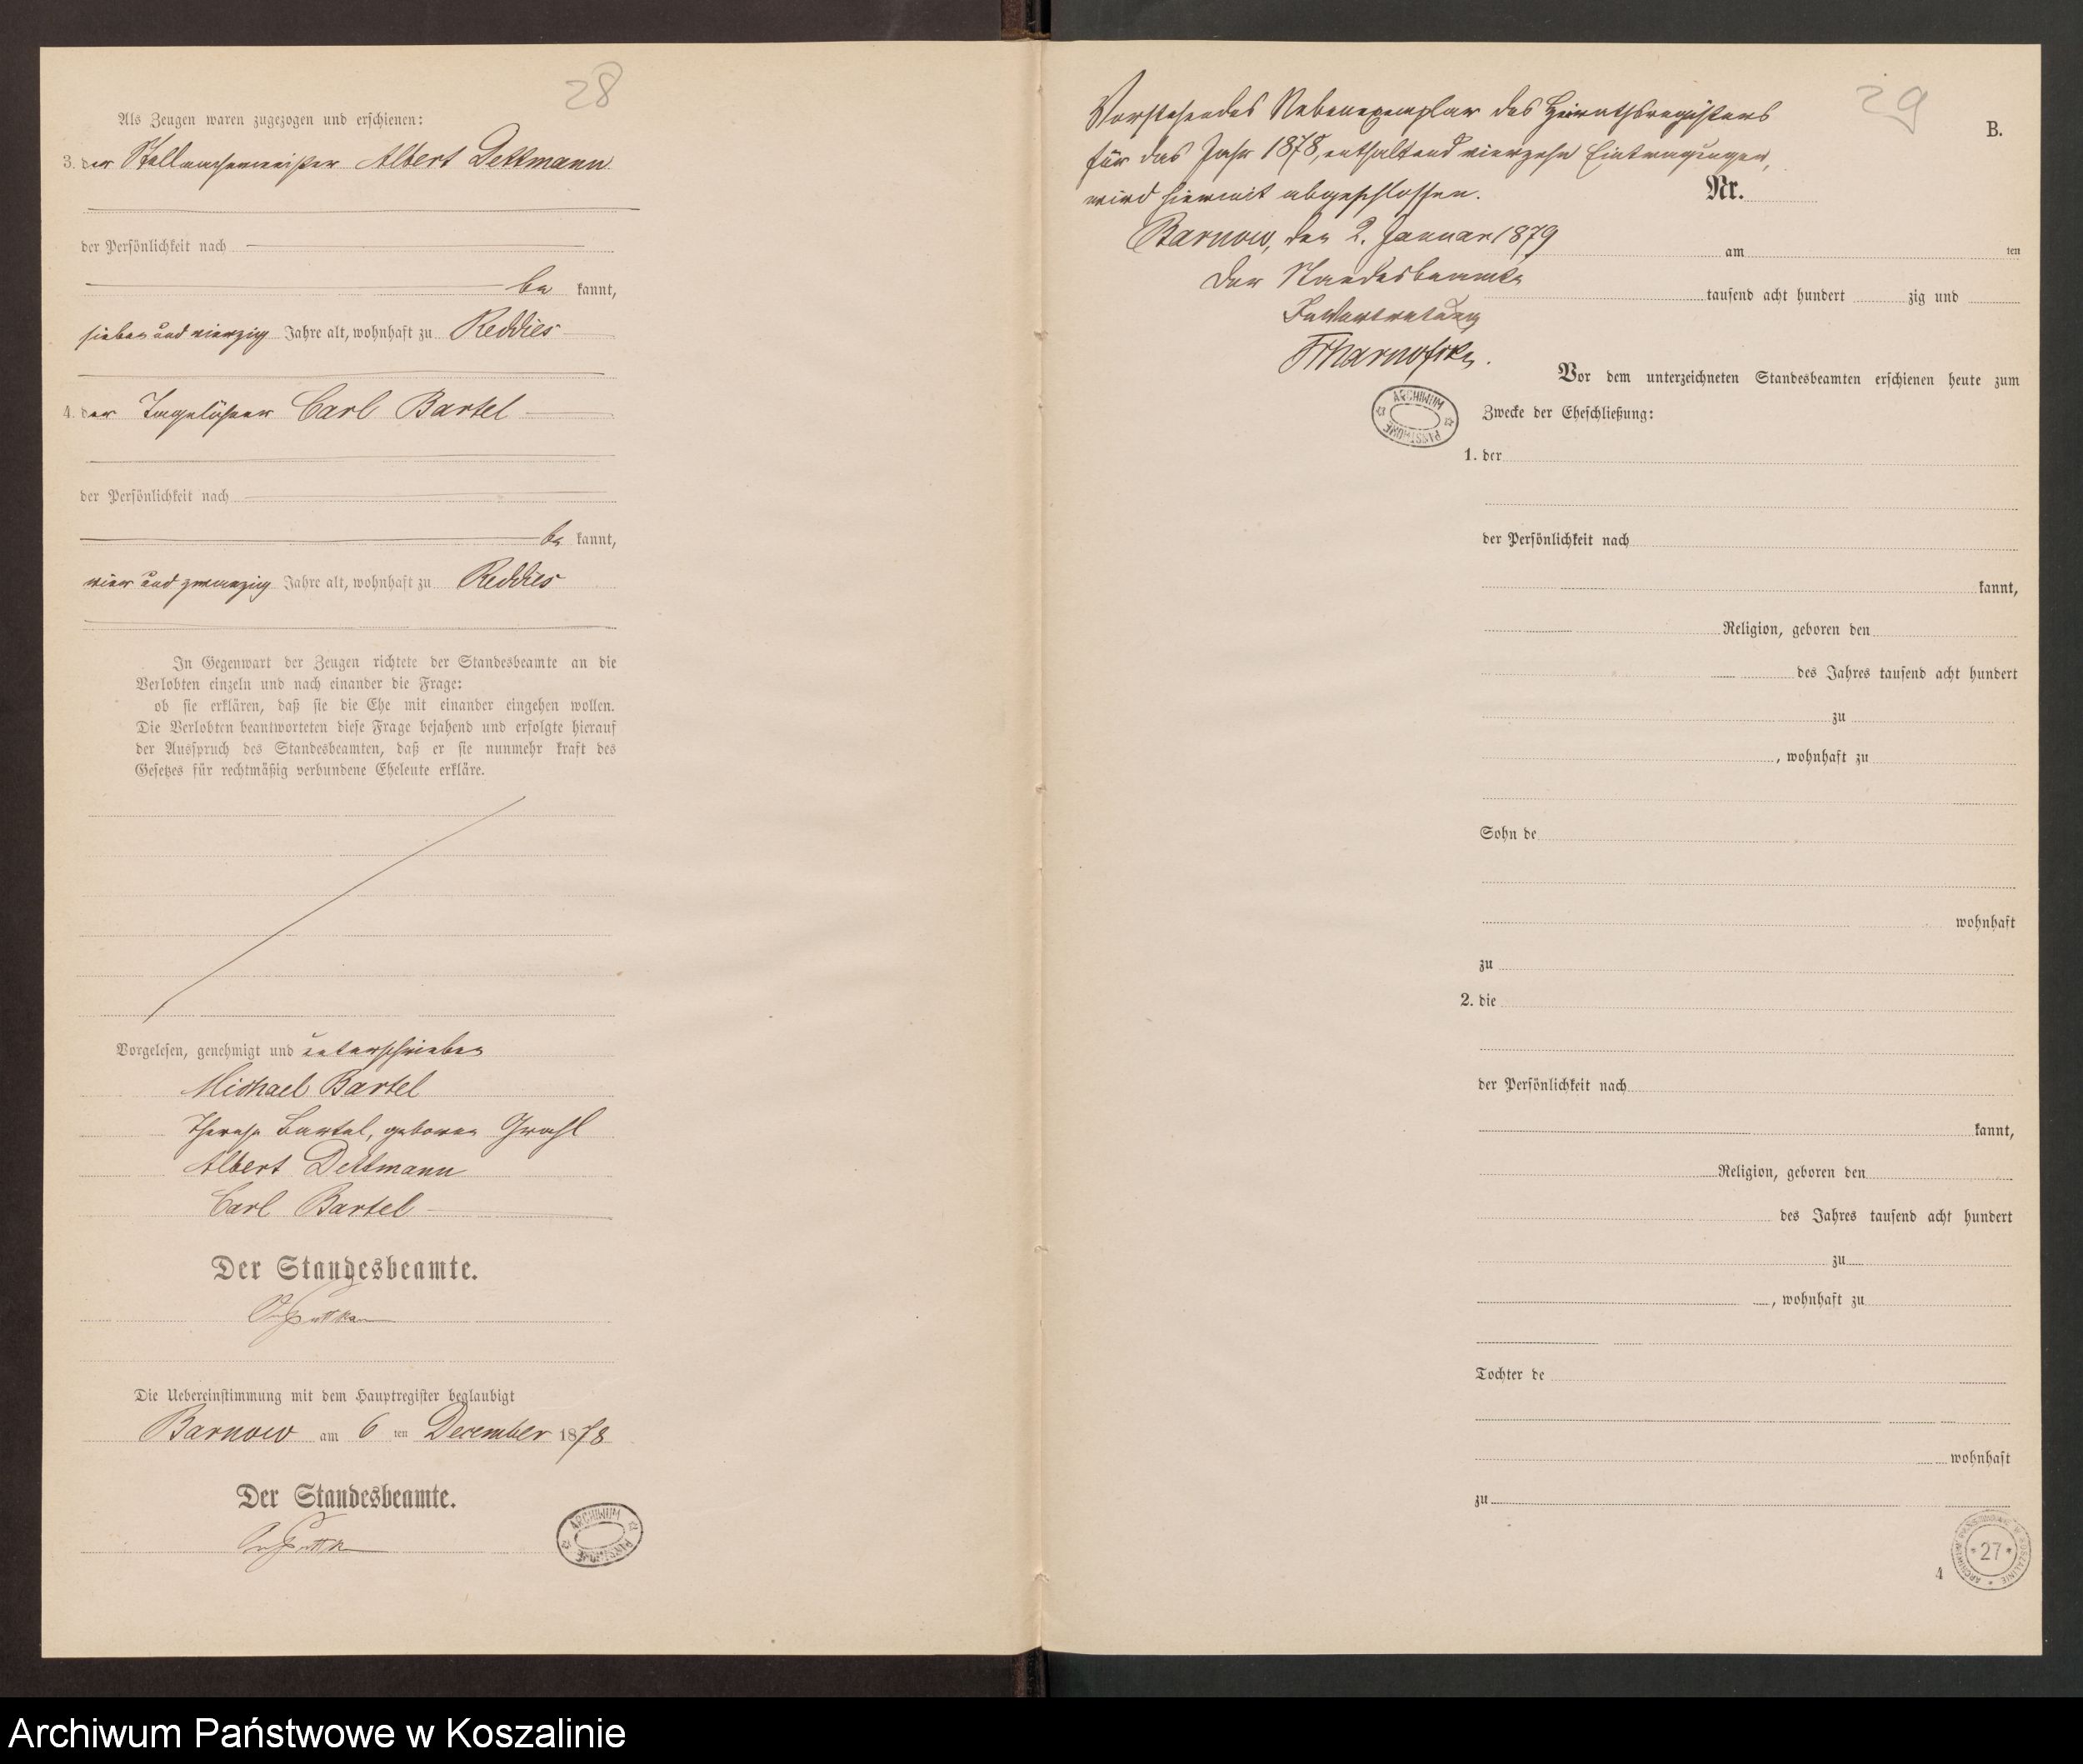 28
Als Zeugen waren zugezogen und erschienen:
3. der Stellmachermeister Albert Dettmann
der Persönlichkeit nach
be kannt,
sieben und vierzig Jahre alt, wohnhaft zu Reddies
4. der Tagelöhner Carl Bartel
der Persönlichkeit nach
be kannt,
vier und zwanzig Jahre alt, wohnhaft zu Reddies
In Gegenwart der Zeugen richtete der Standesbeamte an die
Verlobten einzeln und nach einander die Frage:
ob sie erklären, daß sie die Ehe mit einander eingehen wollen.
Die Verlobten beantworteten diese Frage bejahend und erfolgte hierauf
der Ausspruch des Standesbeamten, daß er sie nunmehr kraft des
Gesetzes für rechtmäßig verbundene Eheleute erkläre.
Vorgelesen, genehmigt und unterschrieben
Michael Bartel
Therese Bartel, geboren Grahl
Albert Dettmann
Carl Bartel
Der Standesbeamte.
Die Uebereinstimmung mit dem Hauptregister beglaubigt
Barnow am 6 ten December 1878
Der Standesbeamte.
ARCHIWUM PAŃSTWOWE
29
B.
Vorstehendes Nebenexemplar des Heirathsregisters
für das Jahr 1878, enthaltend vierzehn Eintragungen,
wird hiermit abgeschlossen.
Nr.
Barnow, den 2. Januar 1879
am ten
Der Standesbeamte
tausend acht hundert zig und
In Vertretung
Vor dem unterzeichneten Standesbeamten erschienen heute zum
Zwecke der Eheschließung:
ARCHIWUM PAŃSTWOWE
1. der
der Persönlichkeit nach
kannt,
Religion, geboren den
des Jahres tausend acht hundert
zu
, wohnhaft zu
Sohn de
wohnhaft
zu
2. die
der Persönlichkeit nach
kannt,
Religion, geboren den
des Jahres tausend acht hundert
zu
, wohnhaft zu
Tochter de
wohnhaft
zu
ARCHIWUM PAŃSTWOWE W KOSZALINIE
* 27 *
4
Archiwum Państwowe w Koszalinie